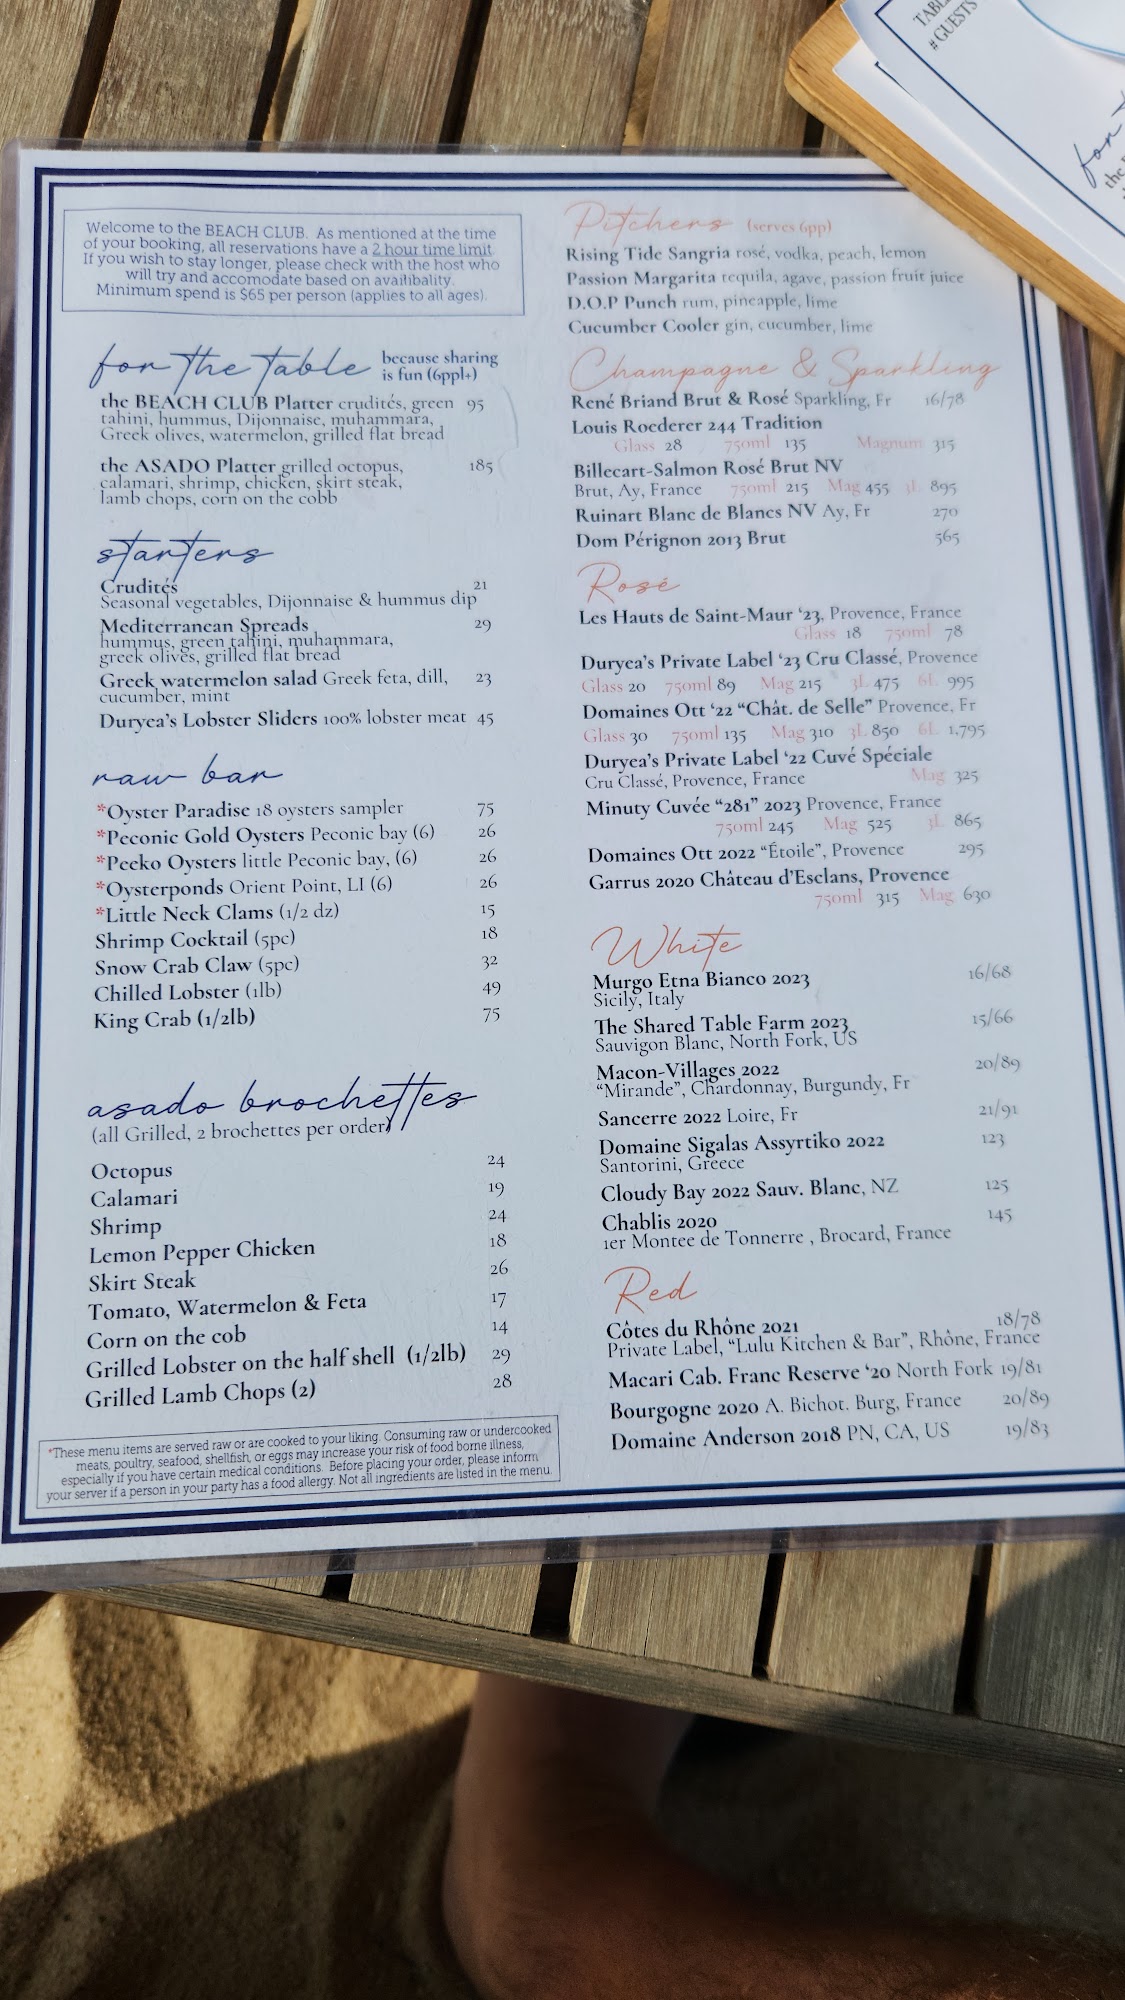 TABL
# GUESTS
for t
the
Welcome to the BEACH CLUB. As mentioned at the time
of your booking, all reservations have a 2 hour time limit.
If you wish to stay longer, please check with the host who
will try and accomodate based on availibality.
Minimum spend is $65 per person (applies to all ages).
for the table because sharing
is fun (6ppl+)
the BEACH CLUB Platter crudités, green 95
tahini, hummus, Dijonnaise, muhammara,
Greek olives, watermelon, grilled flat bread
the ASADO Platter grilled octopus, 185
calamari, shrimp, chicken, skirt steak,
lamb chops, corn on the cobb
starters
Crudités 21
Seasonal vegetables, Dijonnaise & hummus dip
Mediterranean Spreads 29
hummus, green tahini, muhammara,
greek olives, grilled flat bread
Greek watermelon salad Greek feta, dill, 23
cucumber, mint
Duryea's Lobster Sliders 100% lobster meat 45
raw bar
*Oyster Paradise 18 oysters sampler 75
*Peconic Gold Oysters Peconic bay (6) 26
*Peeko Oysters little Peconic bay, (6) 26
*Oysterponds Orient Point, LI (6) 26
*Little Neck Clams (1/2 dz) 15
Shrimp Cocktail (5pc) 18
Snow Crab Claw (5pc) 32
Chilled Lobster (1lb) 49
King Crab (1/2lb) 75
asado brochettes
(all Grilled, 2 brochettes per order)
Octopus 24
Calamari 19
Shrimp 24
Lemon Pepper Chicken 18
Skirt Steak 26
Tomato, Watermelon & Feta 17
Corn on the cob 14
Grilled Lobster on the half shell (1/2lb) 29
Grilled Lamb Chops (2) 28
*These menu items are served raw or are cooked to your liking. Consuming raw or undercooked
meats, poultry, seafood, shellfish, or eggs may increase your risk of food borne illness,
especially if you have certain medical conditions. Before placing your order, please inform
your server if a person in your party has a food allergy. Not all ingredients are listed in the menu.
Pitchers (serves 6pp)
Rising Tide Sangria rosé, vodka, peach, lemon
Passion Margarita tequila, agave, passion fruit juice
D.O.P Punch rum, pineapple, lime
Cucumber Cooler gin, cucumber, lime
Champagne & Sparkling
René Briand Brut & Rosé Sparkling, Fr 16/78
Louis Roederer 244 Tradition
Glass 28 750ml 135 Magnum 315
Billecart-Salmon Rosé Brut NV
Brut, Ay, France 750ml 215 Mag 455 3L 895
Ruinart Blanc de Blancs NV Ay, Fr 270
Dom Pérignon 2013 Brut 565
Rosé
Les Hauts de Saint-Maur '23, Provence, France
Glass 18 750ml 78
Duryea's Private Label '23 Cru Classé, Provence
Glass 20 750ml 89 Mag 215 3L 475 6L 995
Domaines Ott '22 “Chât. de Selle” Provence, Fr
Glass 30 750ml 135 Mag 310 3L 850 6L 1,795
Duryea's Private Label '22 Cuvé Spéciale
Cru Classé, Provence, France Mag 325
Minuty Cuvée “281” 2023 Provence, France
750ml 245 Mag 525 3L 865
Domaines Ott 2022 “Étoile”, Provence 295
Garrus 2020 Château d'Esclans, Provence
750ml 315 Mag 630
White
Murgo Etna Bianco 2023 16/68
Sicily, Italy
The Shared Table Farm 2023 15/66
Sauvigon Blanc, North Fork, US
Macon-Villages 2022 20/89
“Mirande”, Chardonnay, Burgundy, Fr
Sancerre 2022 Loire, Fr 21/91
Domaine Sigalas Assyrtiko 2022 123
Santorini, Greece
Cloudy Bay 2022 Sauv. Blanc, NZ 125
Chablis 2020 145
1er Montee de Tonnerre , Brocard, France
Red
Côtes du Rhône 2021 18/78
Private Label, “Lulu Kitchen & Bar”, Rhône, France
Macari Cab. Franc Reserve '20 North Fork 19/81
Bourgogne 2020 A. Bichot. Burg, France 20/89
Domaine Anderson 2018 PN, CA, US 19/83